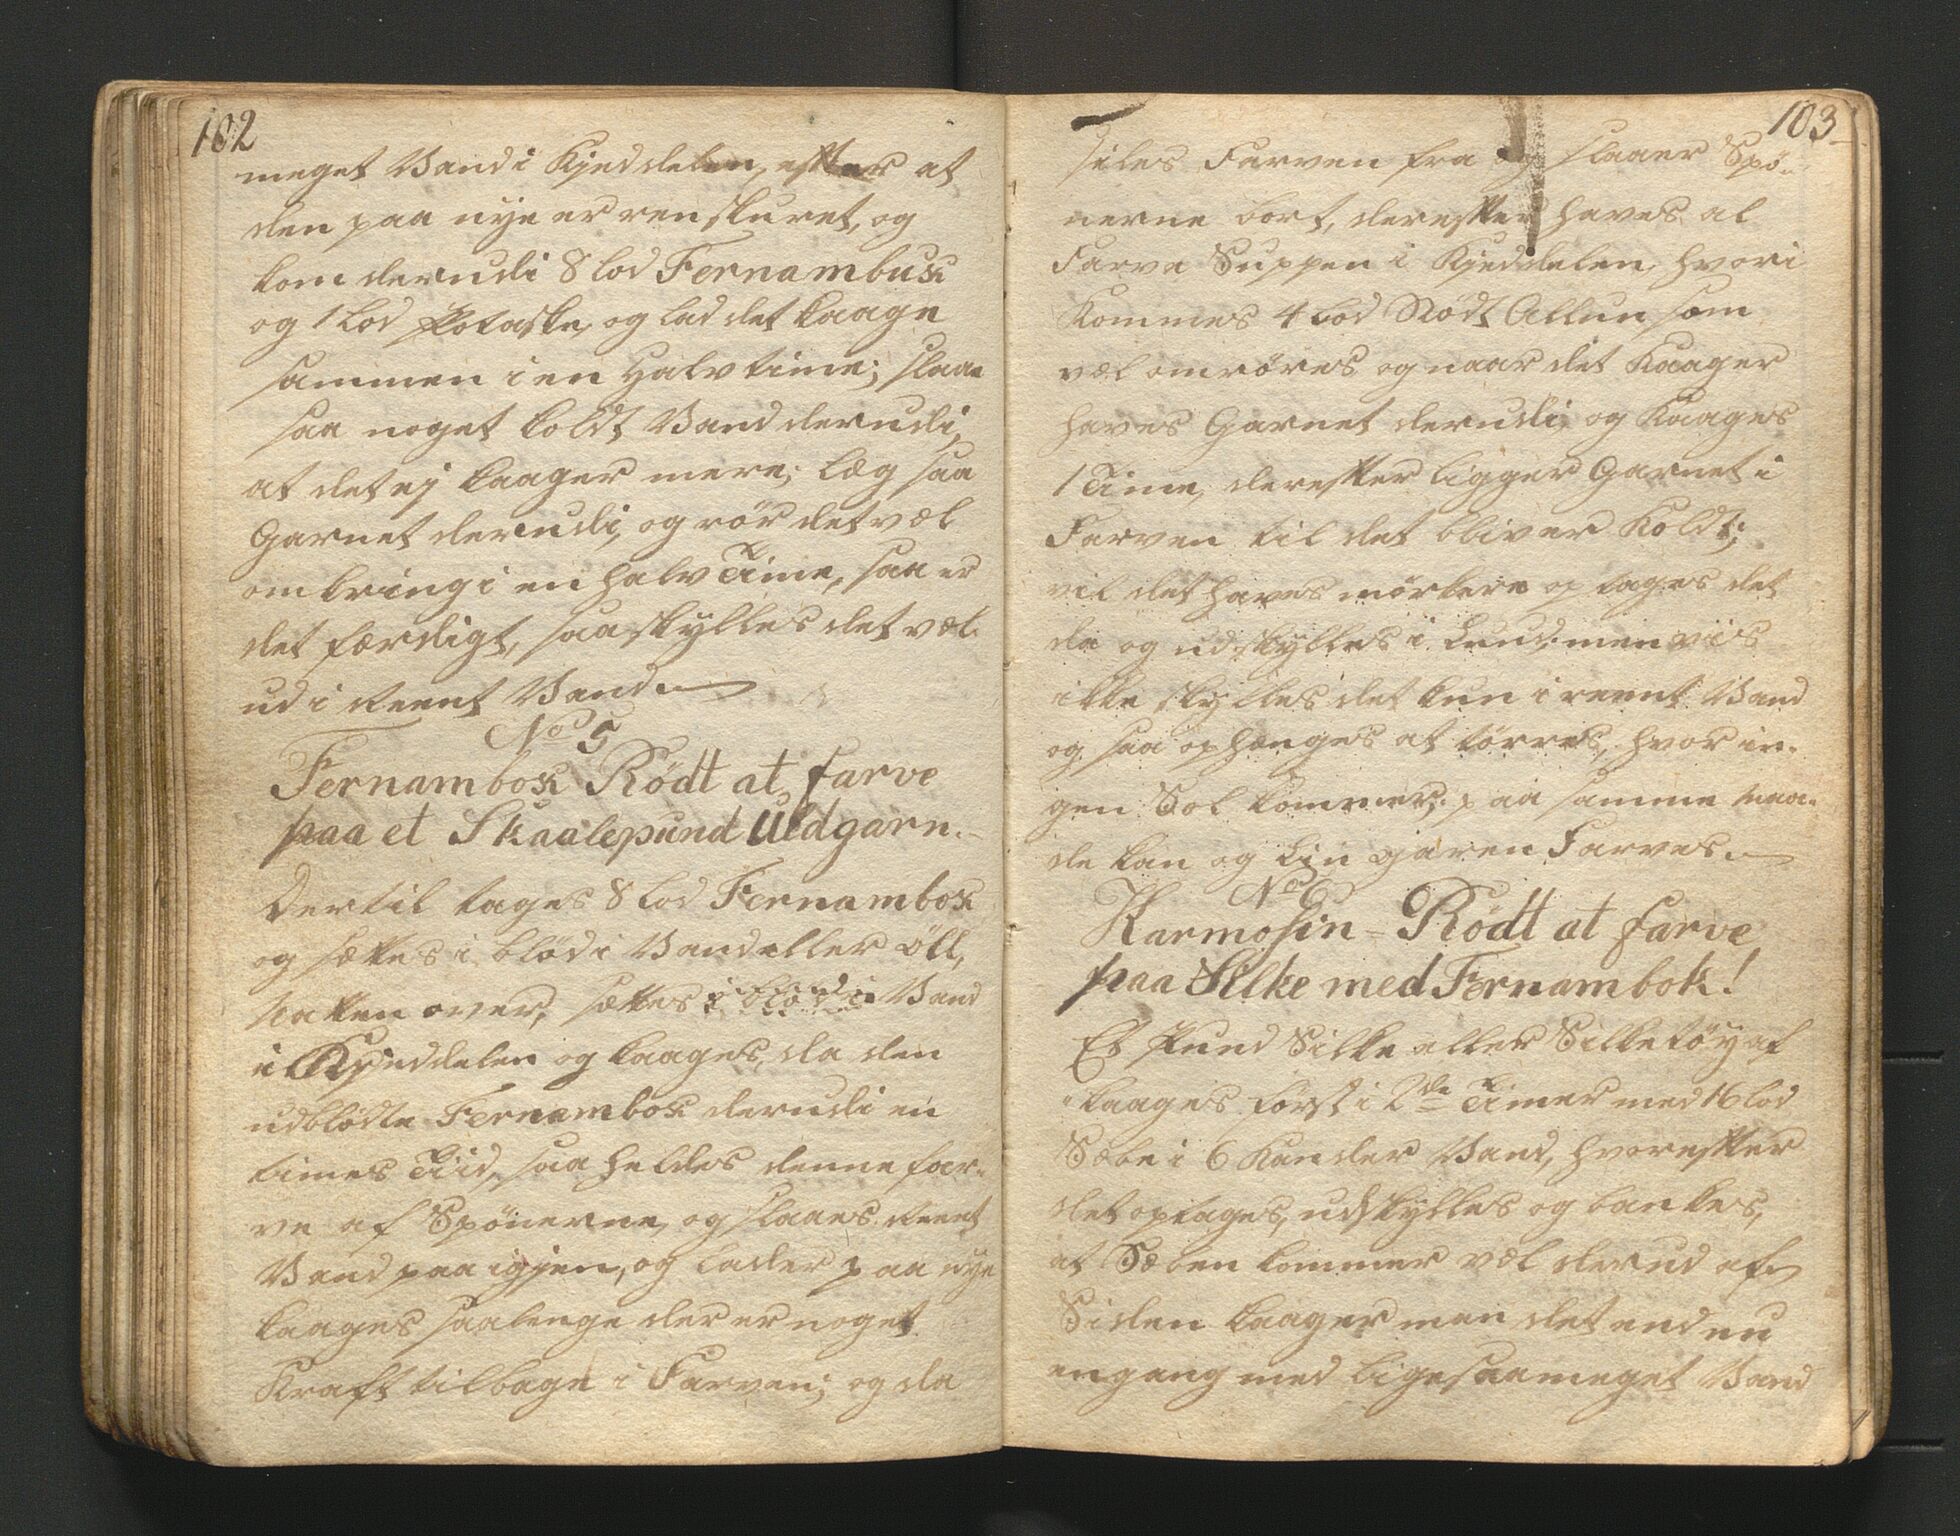 102
meget Vand i Kjeddelen, efter at
den paa nye er renskuret, og
kom derudi 8 lod Fernambuk
og 1 Lod Potaske, og lad det kaage
sammen i en Halvtime; slaae
saa noget koldt Vand derudi,
at det ej kaager mere; læg saa
Garnet derudi, og rör det vel
omkring i en halv Time, saa er
det færdigt, saa skylles det vel
ud i Reent Vand
No 5
Fernambok Rödt at farve
paa et Skaalepund Uldgarn.
Dertil tages 8 Lod Fernambok
og settes i blöd i Vand eller Öll,
Natten over, settes Vand
i Kjeddelen og kaages, da den
udblödte Fernambok derudi en
times Tiid, saa heldes denne far-
ve af Spönerne, og slaaes Reent
Vand paa igjen, og lader paa nye
kaages saalenge der er noget
Kraft tilbage i Farven; og da
103
siles Farven fra og slaaer Spö-
nerne bort, derefter haves al
Farve Suppen i Kjeddelen, hvori
Kommes 4 Lod Rödt Allun, som
vel omröres og naar det Kaager
haves Garnet derudi, og Kaages
1 Time, derefter ligger Garnet i
Farven til det bliver Koldt;
vil det haves mörkere optages det
da og udskylles i Luud, men vis
ikke skylles det kun i reent Vand
og saa ophenges at törres, hvor in-
gen Sol kommer; paa samme Maa-
de kan og Lingaren Farves.
No 6
Karmosin-Rödt at farve
paa Silke med Fernambok!
Et Pund Silke eller Silketöy af-
kaages först i 2de Timer med 16 lod
Sæbe i 6 Kander Vand, hvorefter
det optages, udskylles og bankes,
at Sæben kommer vel derud af
Siden kaager man det endnu
engang med ligesaameget Vand